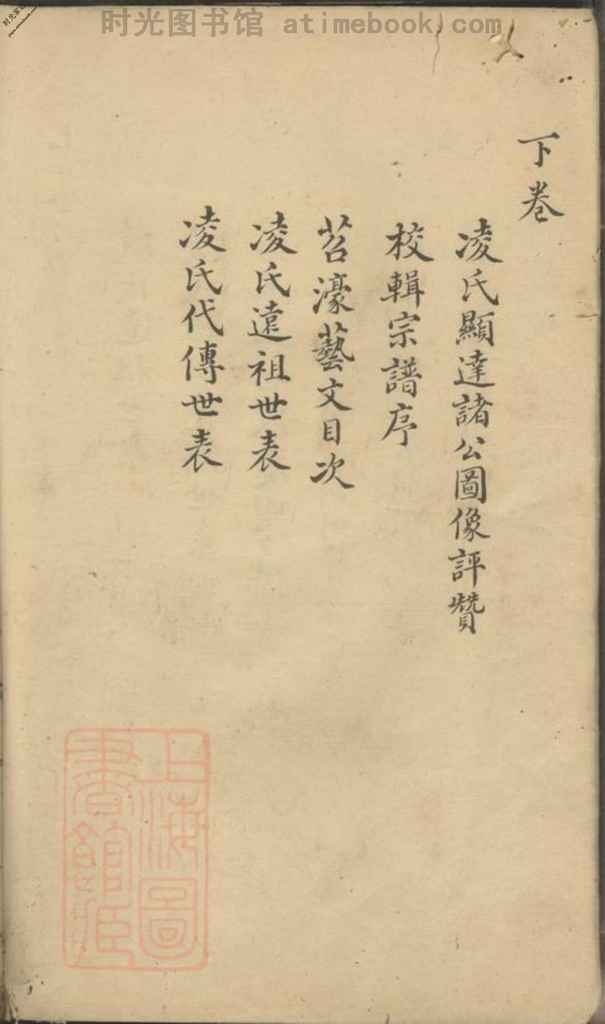 时光图书馆 atimebook.com
下卷
凌氏顯達諸公圖像評贊
校輯宗譜序
苕濠藝文目次
凌氏遠祖世表
凌氏代傳世表
上海圖
書館藏